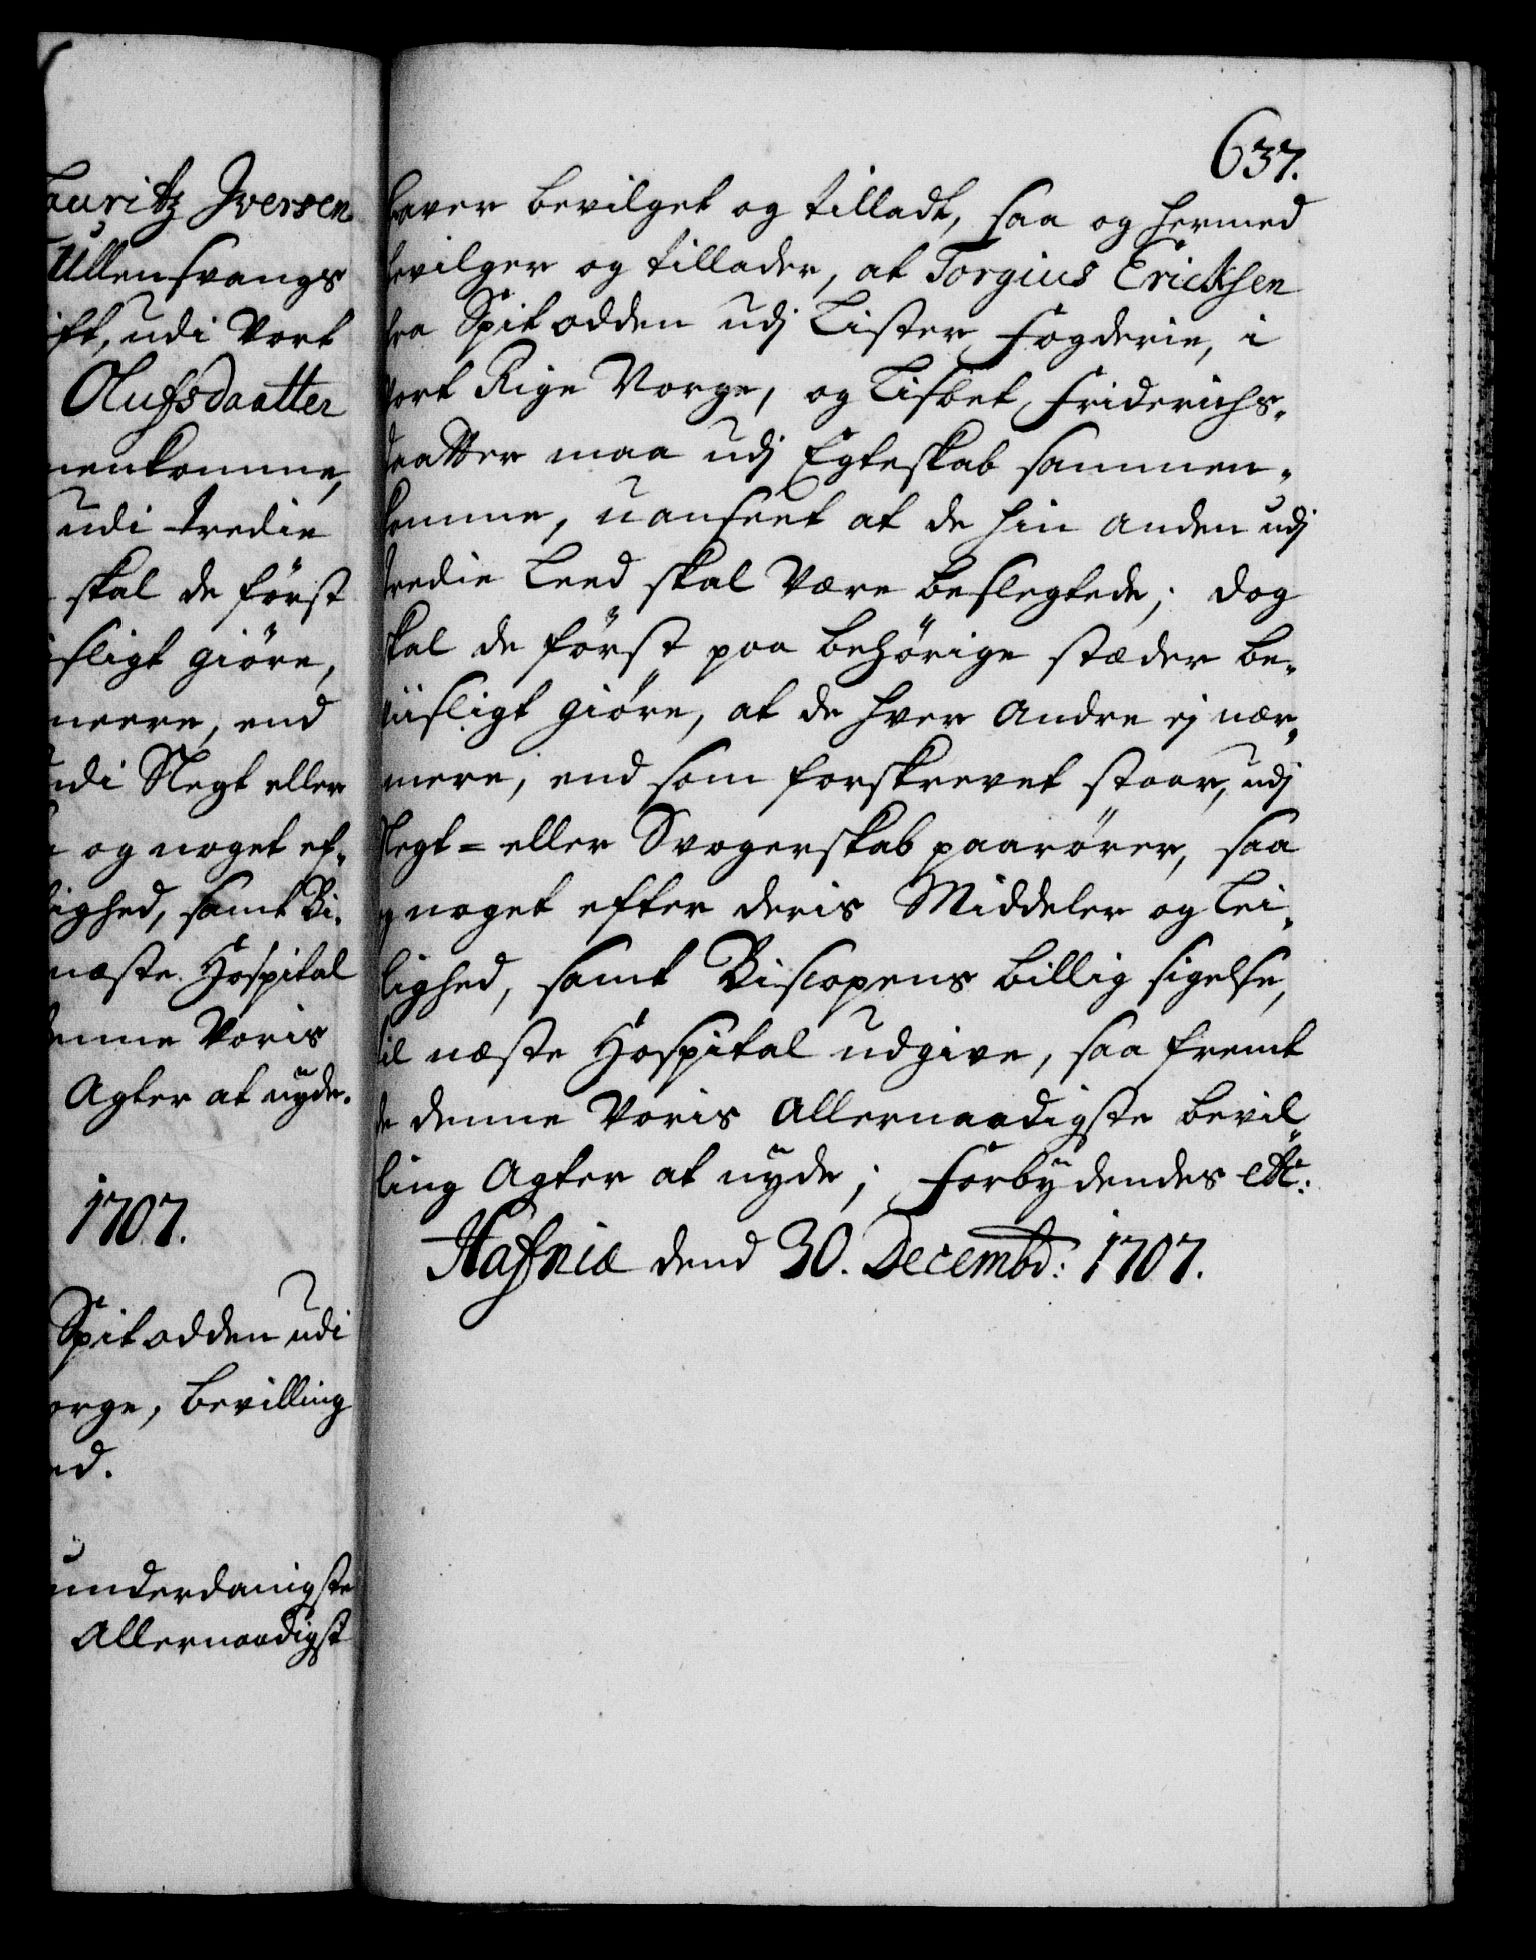 Lauritz Iversen
Ullensvangs
ift, udi Vort
Olufsdaatter
menkomme,
udi tredie
skal de först
isligt giöre,
meere, end
udi Slegt eller
og noget ef„
lighed, samt Bi„
næste Hospital
denne Voris
Agter at nyde.
1707.
Spitodden udi
orge, bevilling
ed.
underdanigste
Allernaadigst
637.
haver bevilget og tilladt, saa og hermed
bevilger og tillader, at Torgius Ericksen
fra Spitodden udj Lister Fogderie, i
Vort Rige Norge, og Lisbet Friderichs„
daatter maa udj Egteskab sammen„
komme, uanseet at de hin anden udj
tredie Leed skal være beslegtede; dog
skal de först paa behörige stæder be„
viisligt giöre, at de hver andre ej nær„
mere, end som forskrevet staar, udj
Slegt= eller Svogerskab paarörer, saa
og noget efter deris Middeler og Lei„
lighed, samt Biscopens billig sigelse,
til næste Hospital udgive, saa fremt
de denne Voris allernaadigste bevil„
ling Agter at nyde; Forbydendes etc:
Hafniæ dend 30. Decembr: 1707.